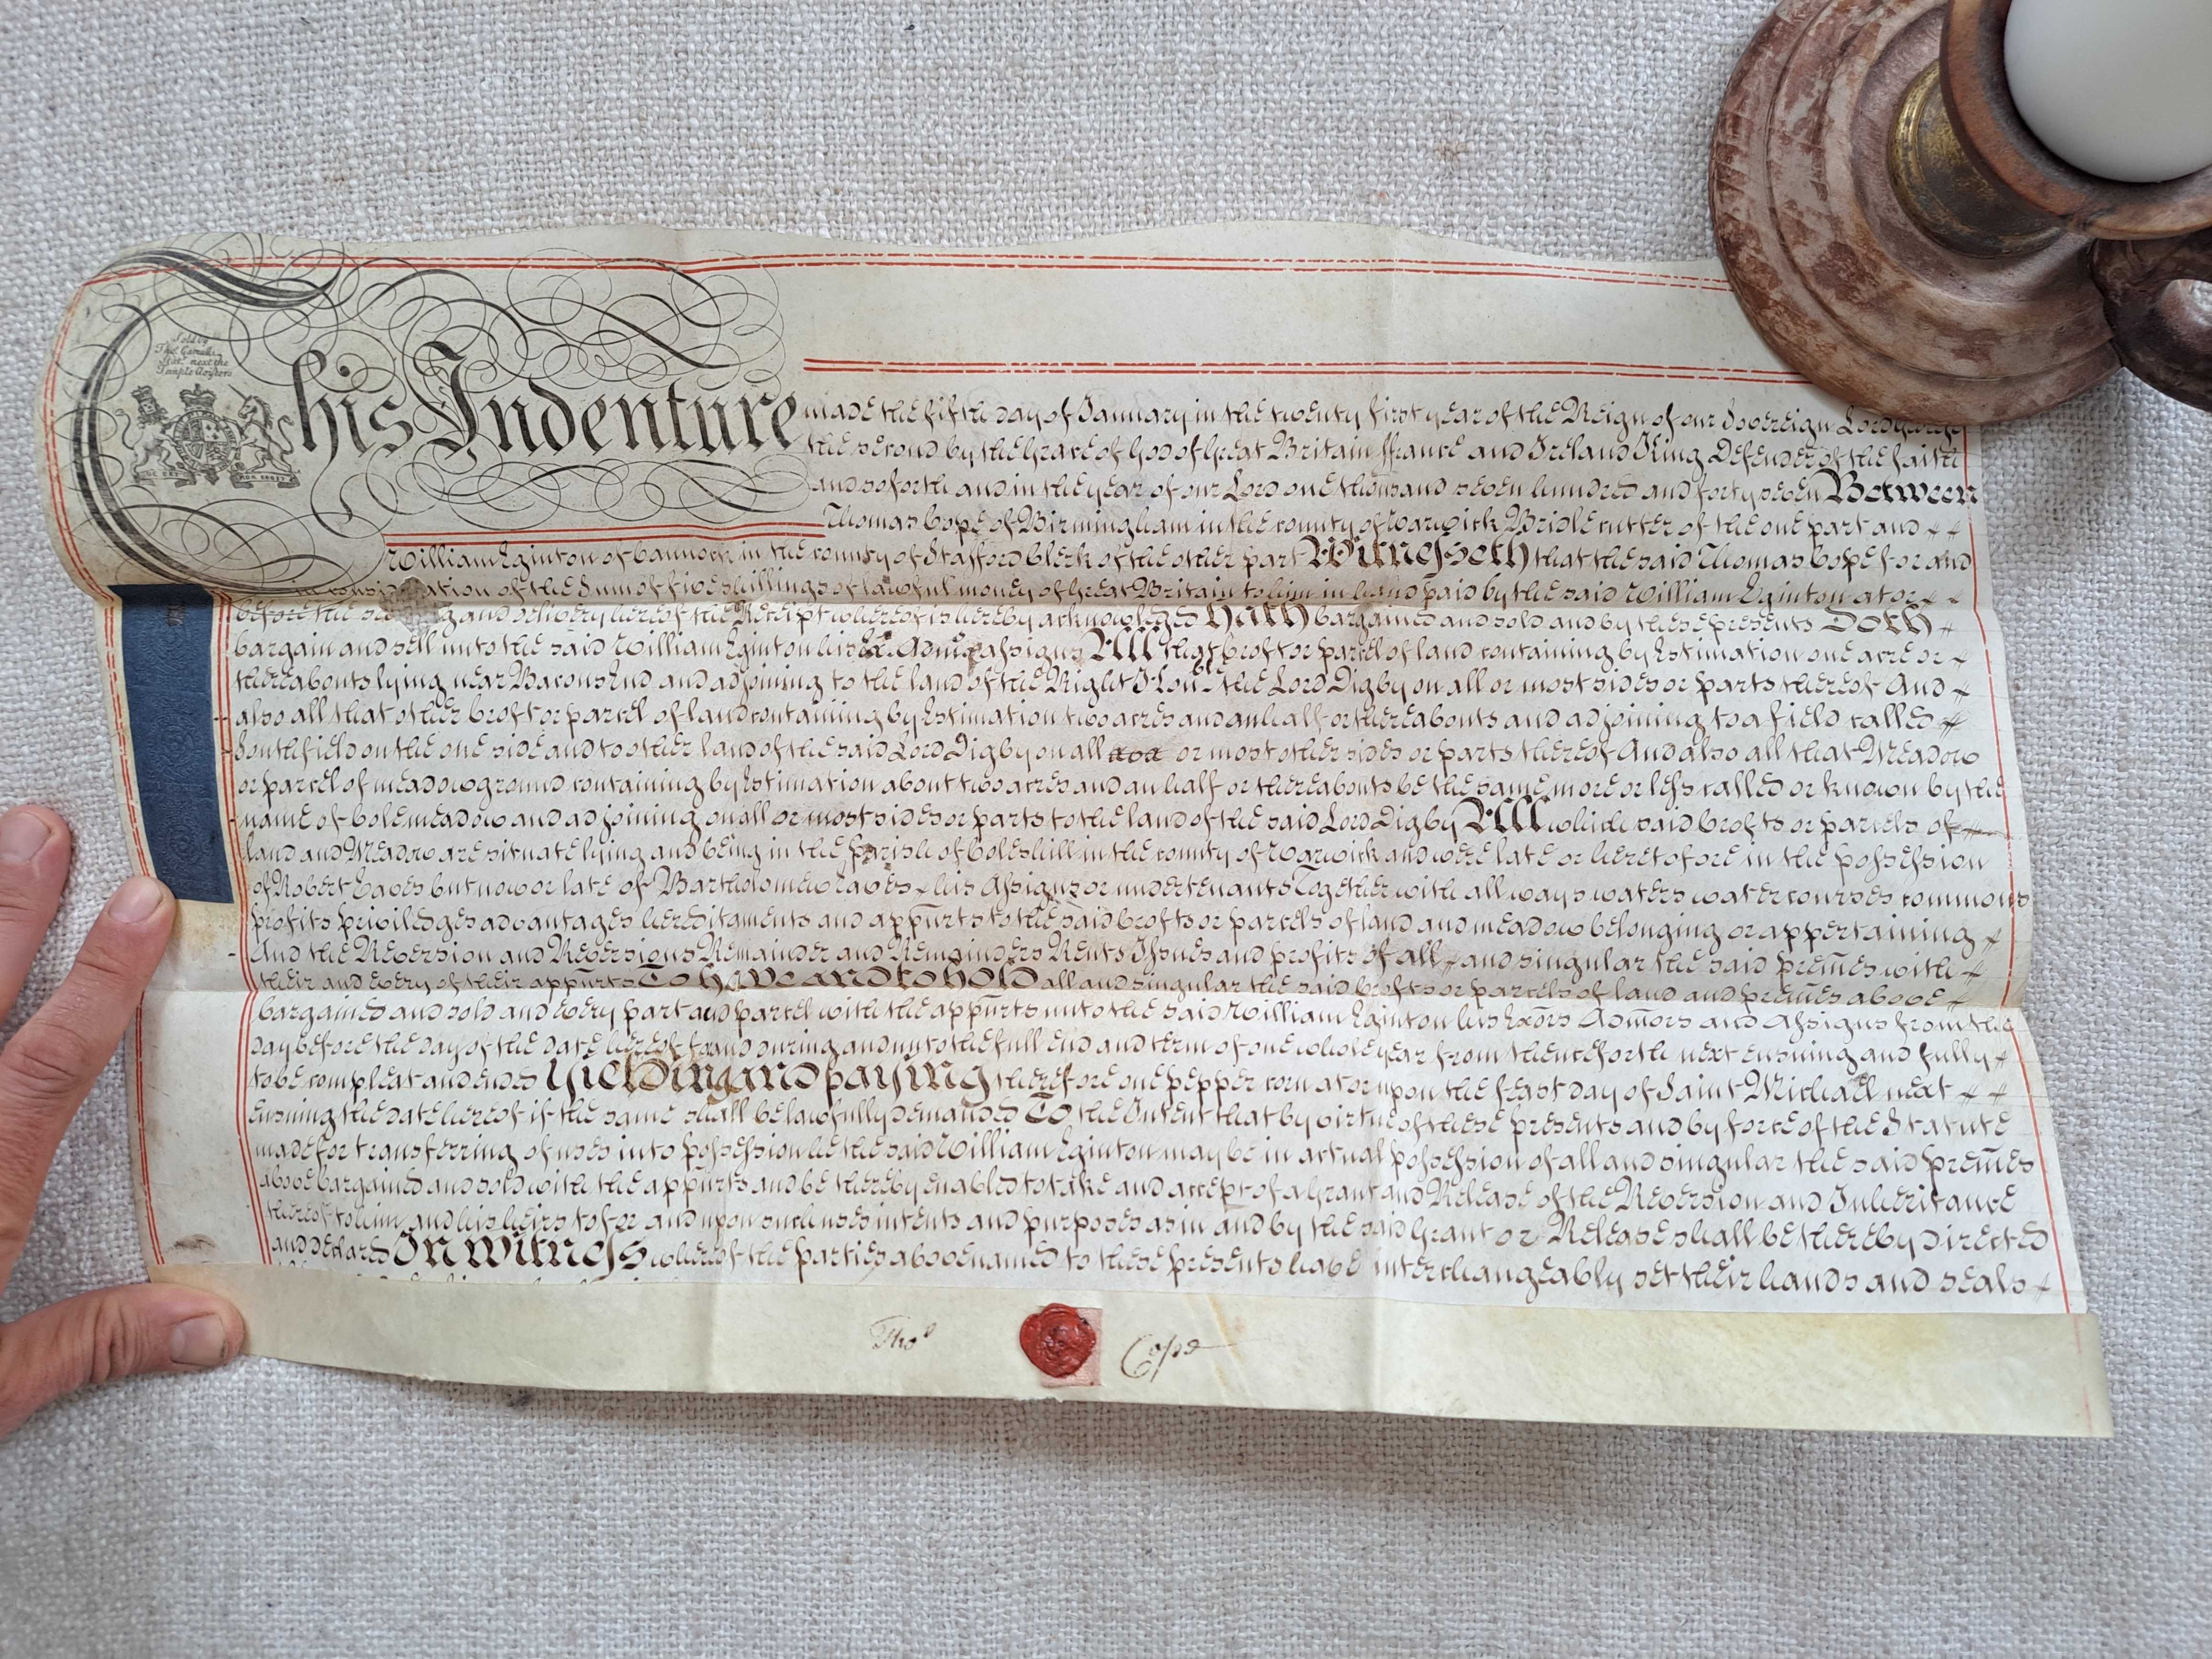 Sold by
next the
Temple
This Indenture made the fifth day of January in the twenty first year of the Reign of our Sovereign Lord George
the second by the Grace of God of Great Britain ffrance and Ireland King Defender of the faith
and soforth and in the year of our Lord one thousand seven hundred and forty seven Between
Thomas Cope of Birmingham in the county of Warwick Bridle cutter of the one part and
William Eginton of Cannock in the county of Stafford Clerk of the other part Witnesseth that the said Thomas Cope for and
in consideration of the Sum of five shillings of lawful money of Great Britain to him in hand paid by the said William Eginton at or
before the and delivery hereof the Receipt whereof is hereby acknowledged Hath bargained and sold and by these presents Doth
bargain and sell unto the said William Eginton his assigns All that Croft or parcel of land containing by Estimation one acre or
thereabouts lying near Bacons End and adjoining to the land of the Right Honble the Lord Digby on all or most sides or parts thereof And
also all that other Croft or parcel of land containing by Estimation two acres and an half or thereabouts and adjoining to a field called
Southfield on the one side and to other land of the said Lord Digby on all or most other sides or parts thereof And also all that Meadow
or parcel of meadow ground containing by Estimation about two acres and an half or thereabouts be the same more or less called or known by the
name of Cole meadow and adjoining on all or most sides or parts to the land of the said Lord Digby All which said Crofts or parcels of
land and Meadow are situate lying and being in the parish of Coleshill in the county of Warwick and were late or heretofore in the possession
of Robert Eaves but now or late of Bartholomew Eaves his Assigns or undertenants Together with all ways waters water courses commons
profits priviledges advantages hereditaments and appurts to the said Crofts or parcels of land and meadow belonging or appertaining
And the Reversion and Reversions Remainder and Remainders Rents Issues and profits of all and singular the said premes with
their and every of their appurts To have and to hold all and singular the said Crofts or parcels of land and premes above
bargained and sold and every part and parcel with the appurts unto the said William Eginton his Exōrs Admōrs and Assigns from the
day before the day of the date hereof for and during and unto the full end and term of one whole year from thenceforth next ensuing and fully
to be compleat and ended Yielding and paying therefore one pepper corn at or upon the feast day of Saint Michael next
ensuing the date hereof if the same shall be lawfully demanded To the Intent that by virtue of these presents and by force of the Statute
made for transferring of uses into possession he the said William Eginton may be in actual possession of all and singular the said premes
above bargained and sold with the appurts and be thereby enabled to take and accept of a Grant and Release of the Reversion and Inheritance
thereof to him and his heirs to for and upon such uses intents and purposes as in and by the said Grant or Release shall be thereby directed
and declared In witness whereof the parties abovenamed to these presents have interchangeably set their hands and seals
Thos Cope